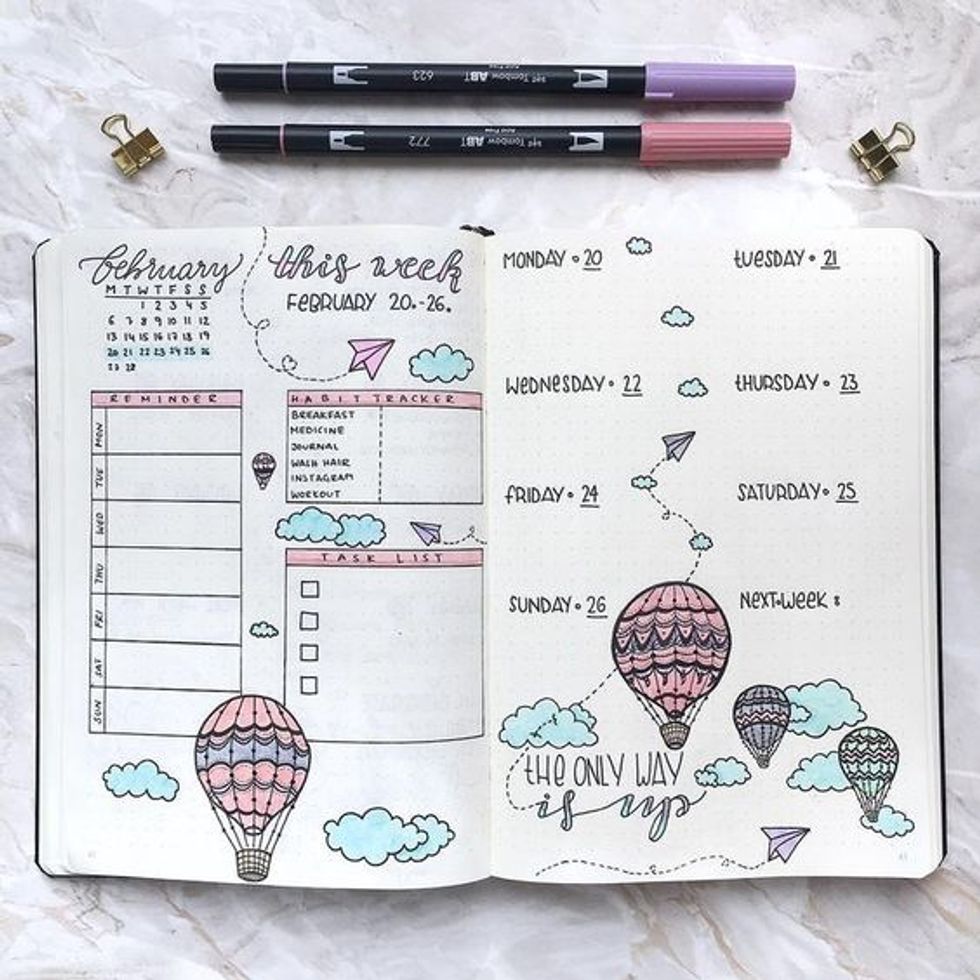 623 ABT Tombow
Acid Free
772 ABT Tombow
Acid Free
February
M T W T F S S
1 2 3 4 5
6 7 8 9 10 11 12
13 14 15 16 17 18 19
20 21 22 23 24 25 26
27 28
this week
FEBRUARY 20.-26.
REMINDER
MON
TUE
WED
THU
FRI
SAT
SUN
HABIT TRACKER
BREAKFAST
MEDICINE
JOURNAL
WASH HAIR
INSTAGRAM
WORKOUT
TASK LIST
MONDAY • 20
TUESDAY • 21
WEDNESDAY • 22
THURSDAY • 23
FRIDAY • 24
SATURDAY • 25
SUNDAY • 26
NEXT•WEEK :
THE ONLY WAY
is up